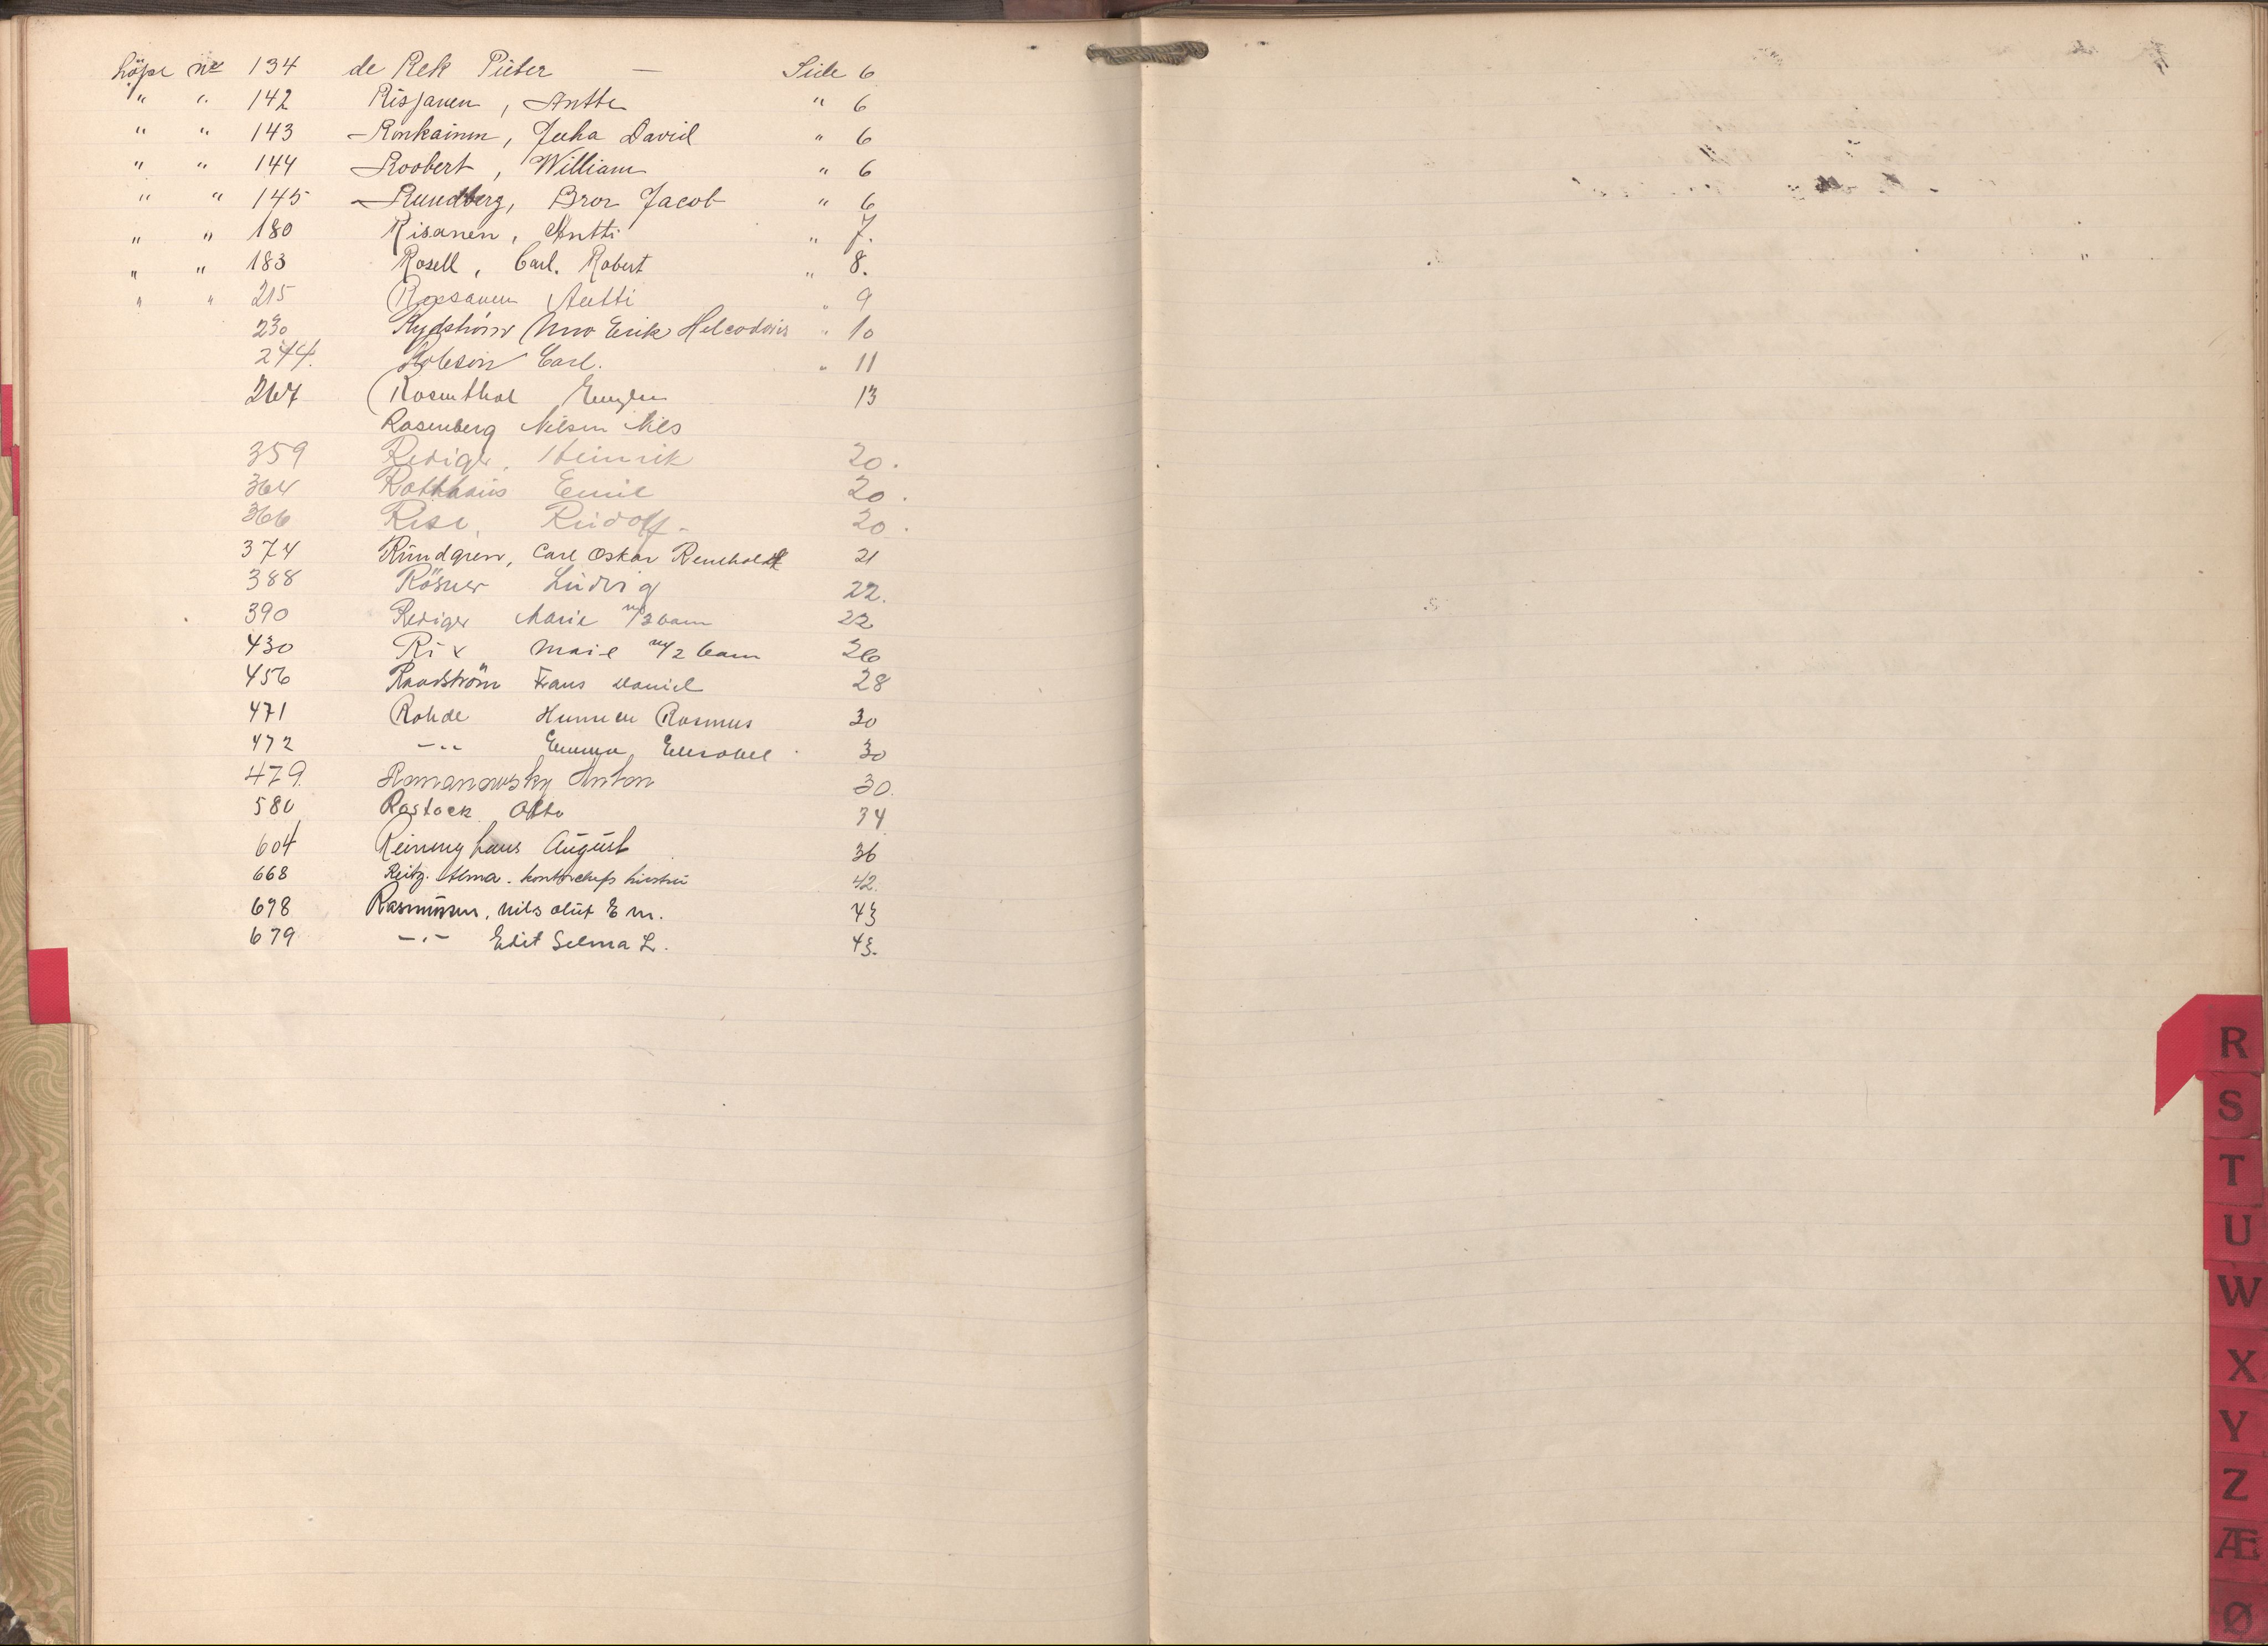 Löpe nr 134 de Rek Pieter — Side 6
" " 142 Risjanen, Antti " 6
" " 143 Ronkainen, Juha David " 6
" " 144 Roobert, William " 6
" " 145 Rundberg, Bror Jacob " 6
" " 180 Risanen, Antti " 7.
" " 183 Rosell, Carl. Robert " 8.
" " 215 Ropsanen Antti " 9
230 Rydström Uno Erik " 10
244. Robson Carl. " 11
267 Rosenthal 13
Rosenberg Nilsen Nils
359 Rediger, Heinrik 20.
364 Rotthaus Emil 20.
366 Rese, Rudolf. 20.
374 Rundgren, Carl Oskar 21
388 Rösner Ludvig 22.
390 Rediger Marie m/3 barn 22
430 Rix Marie m/2 barn 26
456 Raadström Frans Daniel 28
471 Rohde Rasmus 30
472 -"- Emma 30
479. Romanowsky Anton 30.
580 Rostock Otto 34
604 Reininghaus August 36
668 Reitz. Alma. 42.
678 Rasmussen, Nils Oluf E M. 43
679 -"- Edit Selma L. 43.
R
S
T
U
W
X
Y
Z
Æ
Ø